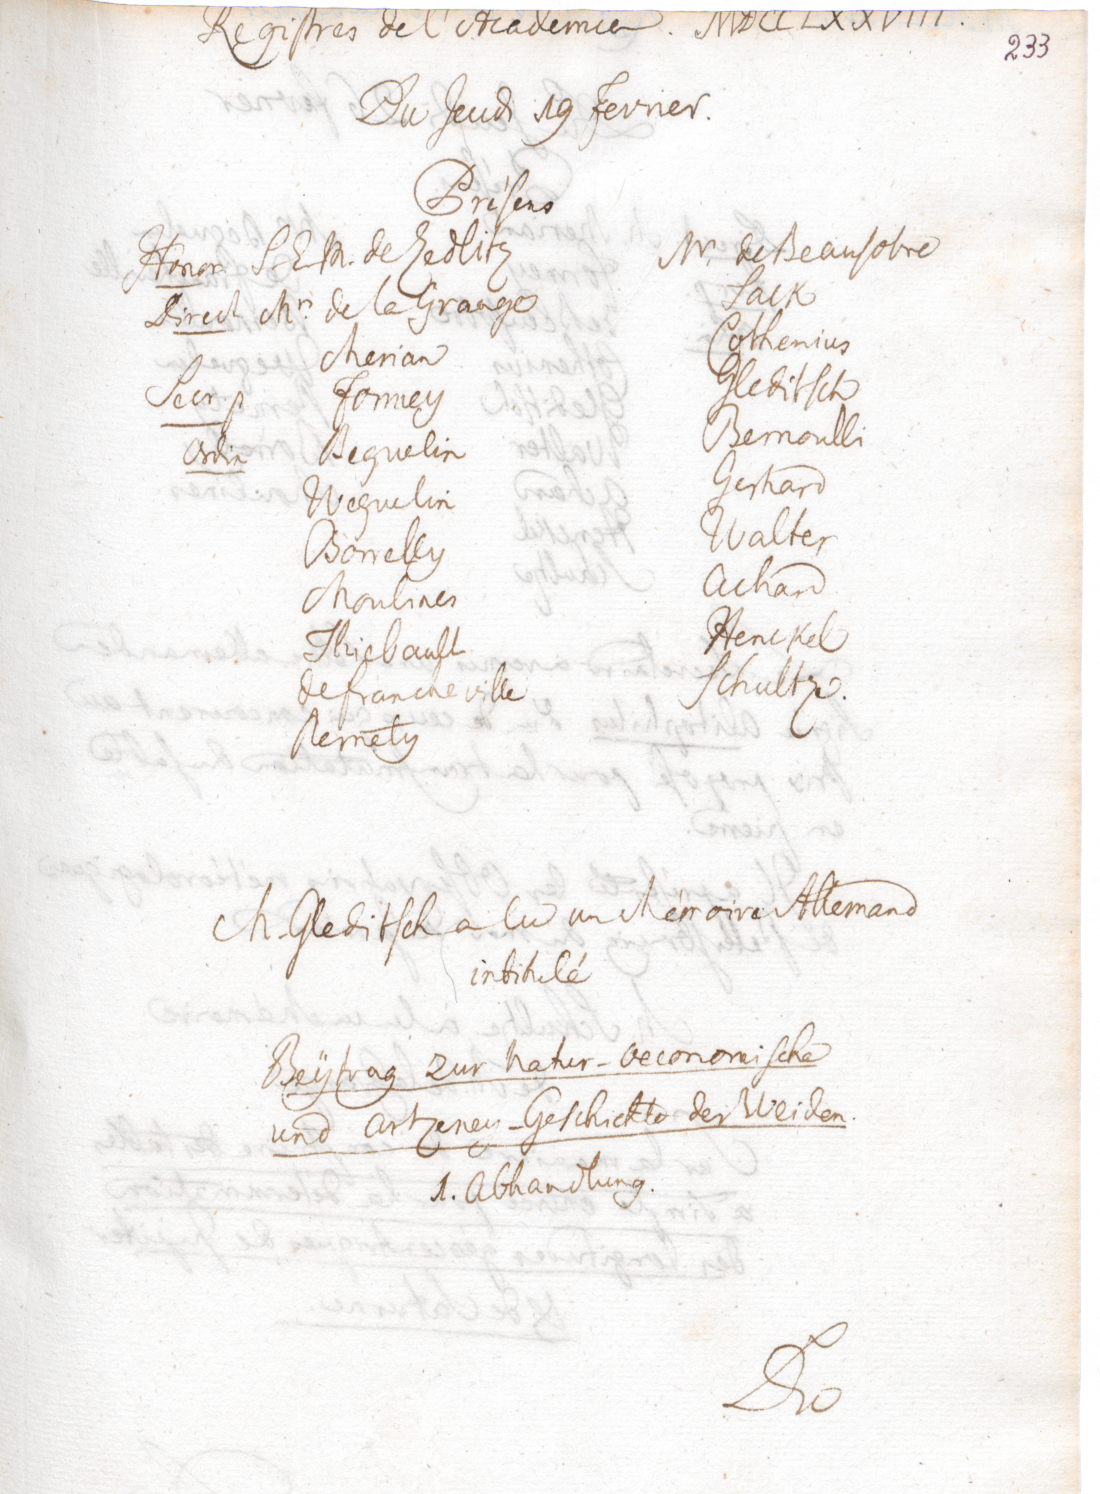 Registres de l'Academie. MDCCLXXVIII.
233
Du Jeudi 19 Fevrier.
Présens
Honor. S. E. M. de Zedlitz
Direct. Mrs de la Grange
Merian
Secr. p. Formey
Ordin Beguelin
Weguelin
Borrelly
Moulines
Thiebault
de Francheville
Pernety
Mr. de Beausobre
Sack
Cothenius
Gleditsch
Bernoulli
Gerhard
Walter
Achard
Henckel
Schultze.
M. Gleditsch a lu un Mémoire Allemand
intitulé
Beÿtrag zur Natur-oeconomische
und Artzeney-Geschichte der Weiden.
1. Abhandlung.